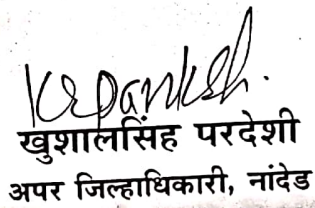 खुशालसिंह परदेशी
अपर जिल्हाधिकारी, नांदेड